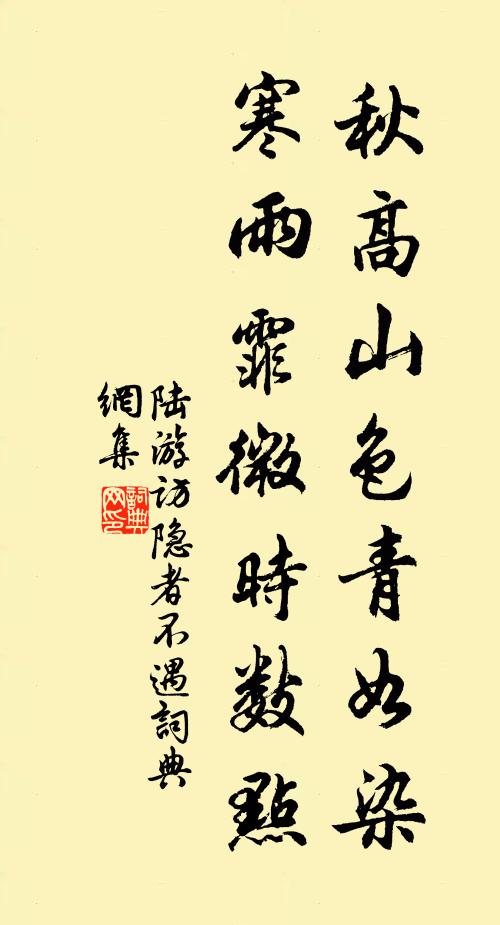 秋高山色青如染
寒雨霏微時數點
陆游访隐者不遇詞典
網集
詞典
网印